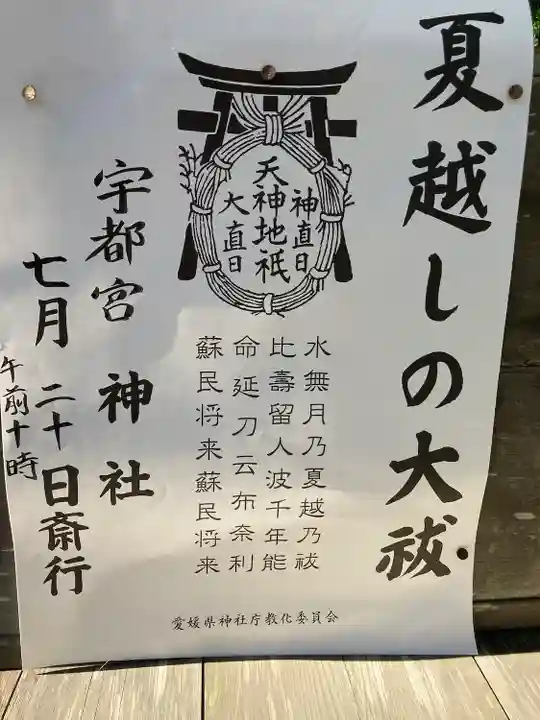 夏越しの大祓
神直日
天神地祇
大直日
水無月乃夏越乃祓
比壽留人波千年能
命延刀云布奈利
蘇民将来蘇民将来
宇都宮神社
七月二十日斎行
午前十時
愛媛県神社庁教化委員会